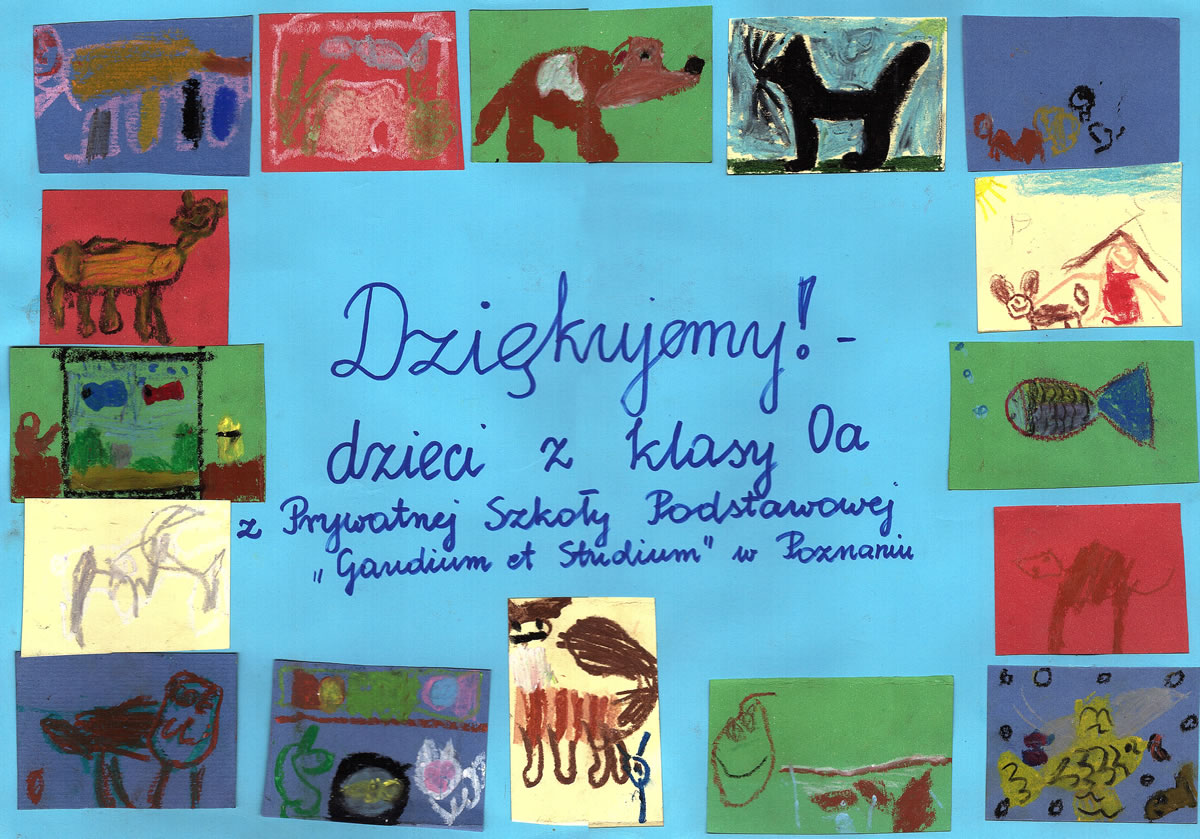 Dziękujemy! -
dzieci z klasy 0a
z Prywatnej Szkoły Podstawowej
„Gaudium et Studium" w Poznaniu